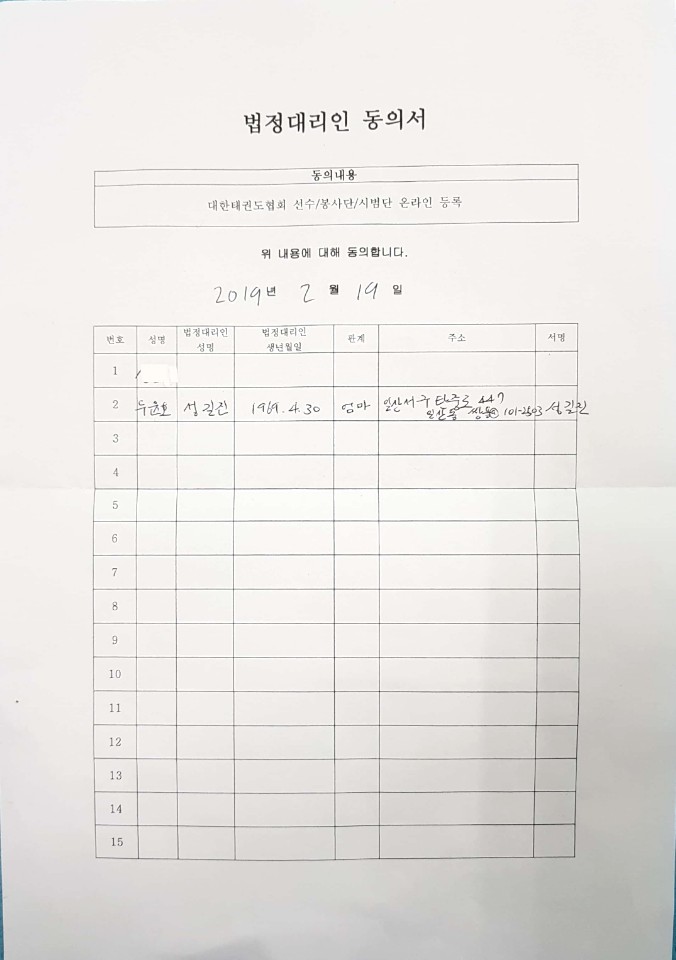 법정대리인 동의서
동의내용
대한태권도협회 선수/봉사단/시범단 온라인 등록
위 내용에 대해 동의합니다.
2019년 2월 19일
번호 성명 법정대리인 성명 법정대리인 생년월일 관계 주소 서명
1
2 두윤호 설길진 1969.4.30 엄마 일산서구 탄중로 447
일산동 쌍용@ 101-2503 설길진
3
4
5
6
7
8
9
10
11
12
13
14
15